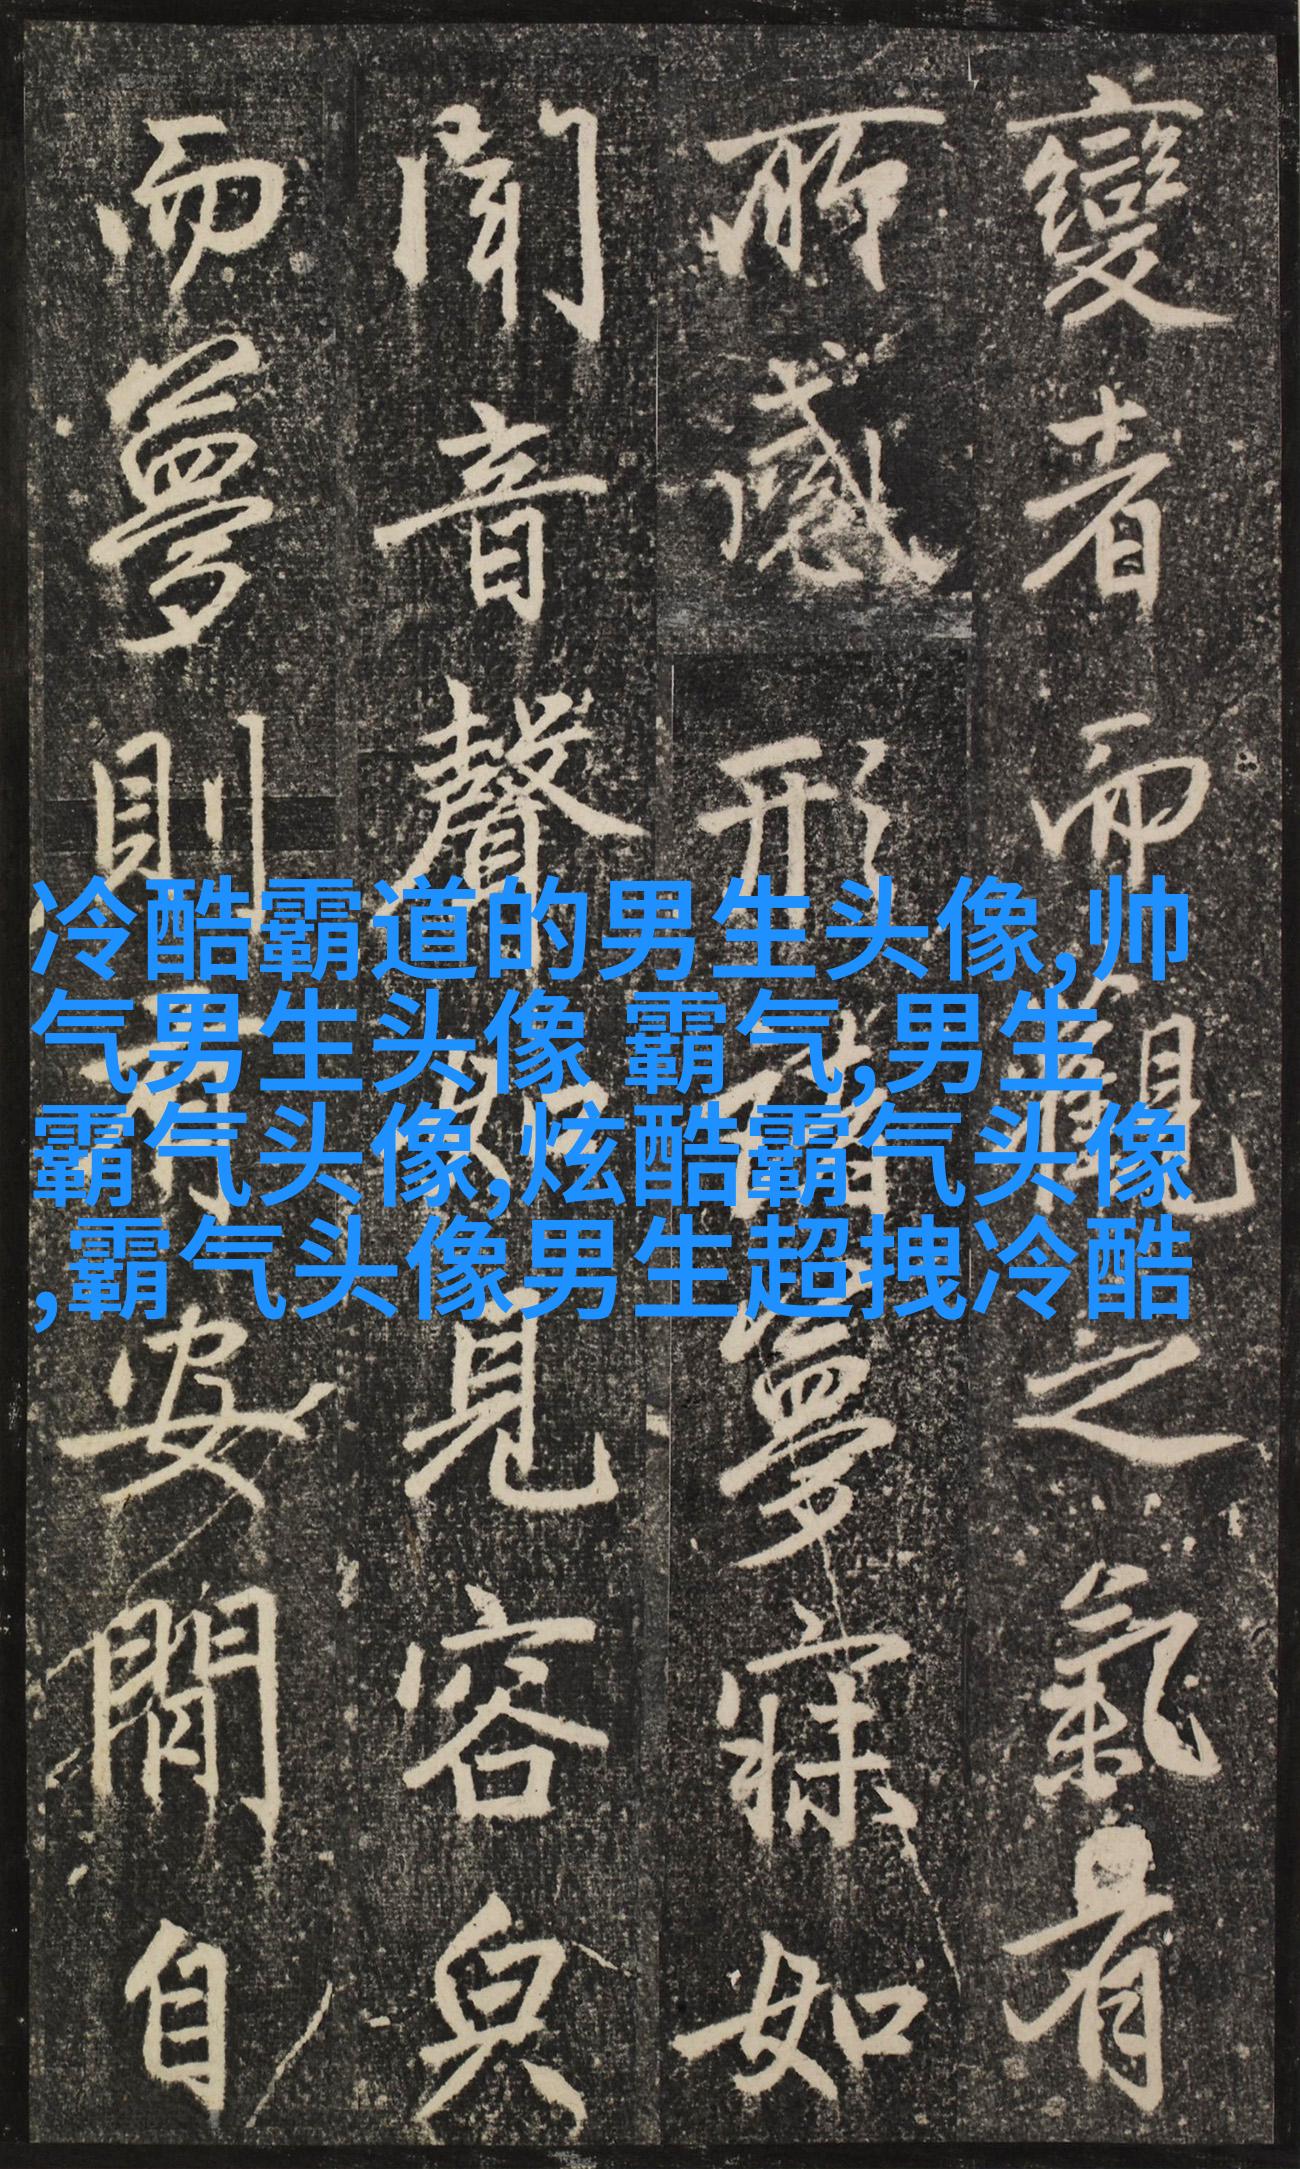 變者而觀之氣有
所感形諸夢寐如
聞音聲如見容皃
而夢則有安閒自
冷酷霸道的男生头像,帅
气男生头像 霸气,男生
霸气头像,炫酷霸气头像
,霸气头像男生超拽冷酷